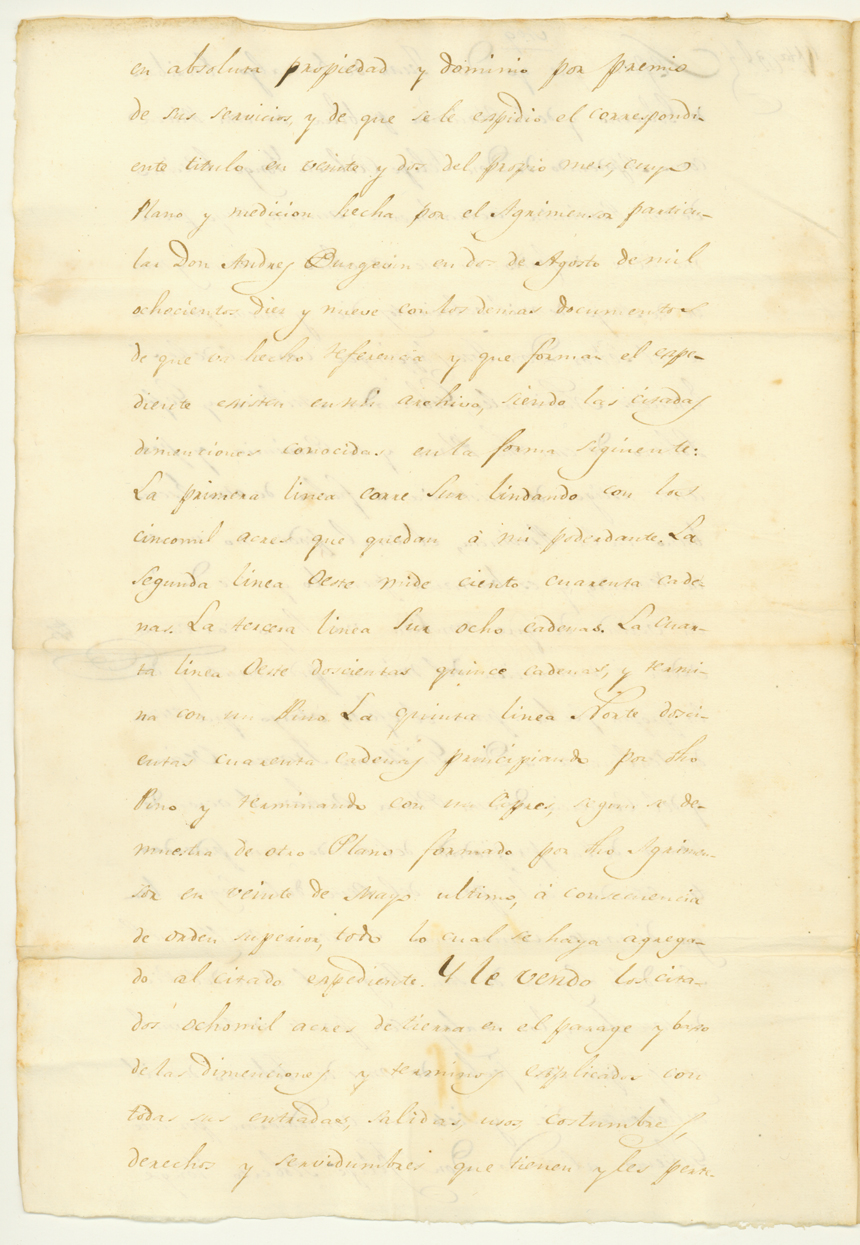 en absoluta propiedad y dominio por premio
de sus servicios, y de que se le espidio el correspondi-
ente titulo en veinte y dos del propio mes, cuyo
Plano y medicion hecha por el Agrimensor particu-
lar Don Andres Burgevin en dos de Agosto de mil
ochocientos diez y nueve con los demas documentos
de que va hecho referencia y que forman el espe-
diente existen en mi archivo, siendo las citadas
dimenciones conocidas en la forma siguiente:
La primera linea corre Sur lindando con los
cincomil acres que quedan á mi poderdante. La
segunda linea Oeste mide ciento cuarenta cade-
nas. La tercera linea Sur ocho cadenas. La cuar-
ta linea Oeste doscientas quince cadenas, y termi-
na con un Pino La quinta linea Norte dosci-
entas cuarenta cadenas principiando por dho
Pino y terminando con un Cipres, segun se de-
muestra de otro Plano formado por dho Agrimen-
sor en veinte de Mayo ultimo, á consecuencia
de orden superior, todo lo cual se haya agrega-
do al citado expediente. Y le vendo los cita-
dos ochomil acres de tierra en el parage y bajo
de las dimenciones y terminos esplicados con
todas sus entradas, salidas, usos, costumbres,
derechos y servidumbres que tienen y les perte-